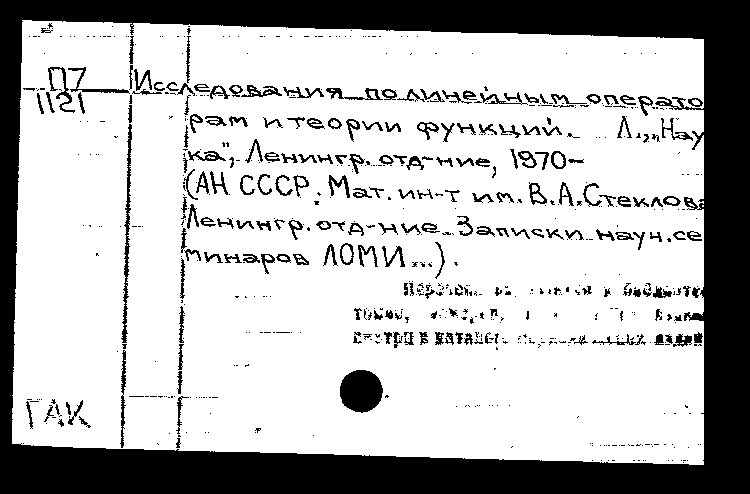 П7
1121
Исследования по линейным операто
рам и теории функций. Л., „Нау
ка“, Ленингр. отд-ние, 1970–
(АН СССР. Мат. ин-т им. В.А.Стеклова
Ленингр. отд-ние. Записки науч. се
минаров ЛОМИ...).
смотри в
ГАК